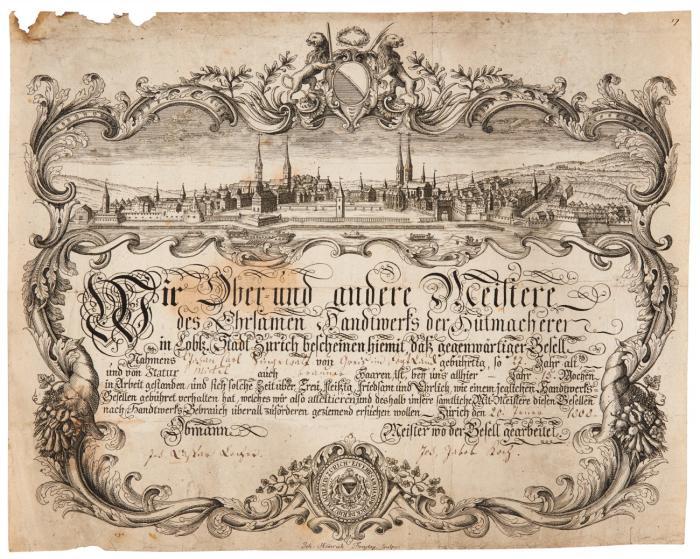 17
Wir Ober und andere Meistere
des Ehrsamen Handtwerks der Hutmacheren
in Lobl. Stadt Zürich bescheinen hiemit daß gegenwärtiger Gesell
Nahmens von gebührtig, so Jahr alt
und von Statur Mittel auch Haaren ist, bey uns allhier Jahr Wochen
in Arbeit gestanden, und sich solche Zeit über Treü, fleißig, Friedsam und Ehrlich, wie einem jeglichen Handtwerks
Gesellen gebühret, verhalten hat, welches wir also attestieren, und deshalb unsere sämtliche Mit-Meistere diesen Gesellen
nach Handtwerks-Gebrauch überall zufördern, geziemend ersuchen wollen. Zürich den 20.
Obmann. Meister wo der Gesell gearbeitet.
Jos. Jakob
Joh. Heinrich Sculps.